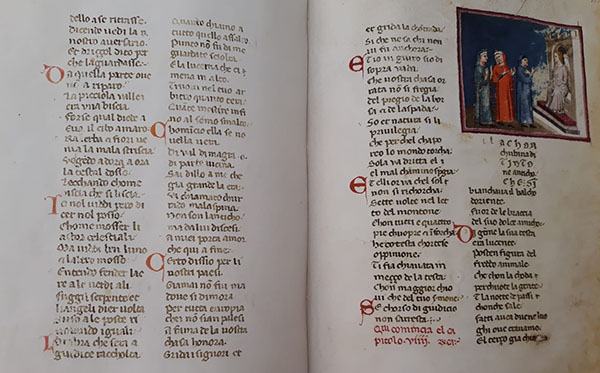 dello a se ritrasse
dicendo vedi la il
nostro aversaro
Et drizzol dito per
che laguardasse
Da quella parte ove
no a riparo
La picciola valle
era una biscia
forse qual diede a
Eva il cibo amaro
Ra lerba e fiori ve
nia la mala striscia
Volgedo adora a ora
la testal dosso
Lecchando chome
bestia che si liscia
Io nol vidi po di
cer nol posso
Chome mosser li
astor celestiali
Ma vidi ben luno
e laltro mosso
Sentendo fender lae
re ale verdi ali
fuggil serpente et
langeli dier volta
Suso ale poste ri
volando iguali
Lombra che sera a
giudice racholta
Quanto chiamo a
tutto quello assalto
Punto non fu da me
guardare sciolta
Se la lucerna che ti
mena in alto
Truovi nel tuo ar
bitrio quanto cera
Quate mestire infi
no al somo smalto
Chomicio ella se no
vella vera
Di val di magra o
di parte vicina
Sai dillo a me che
gia grande la era
fui chiamato chur
rado malaspina
Non son lanticho
ma dalui discesi
A miei porta amor
che qui a fina
Certo dissio per li
vostri paesi
Giamai no fui ma
dove si dimora
Per tutta europia
che no sian palesi
La fama de la vostra
chasa honora
Grida i signori et
et grida la chontrada
Si che ne sa chi non
vi fu anchora
Et io vi giuro sio di
sopra vada
Che vostra chasa or
rata no si fregia
del pregio de la bor
sa et de la spada
So et natura si li
privilegia
che per chel chapo
reo lo mondo torcha
Sola va dritta el
mal chamino spregia
Et elli or va chel sol
non si richorcha
Sette volte nel lec
to del montone
Chon tutti e quattro
pie chuopre et inforcha
Che cotesta chortese
oppinione
Ti fia chiavata in
mezzo de la testa
Chon maggior chio
vi che del tuo smone
Se chorso di giudicio
non saresta
Qui comincia el ca
pitolo viiii
La cho
chubina di
Titone
ne ancho
thesi
biancava al balcho
doriente
fuor de le braccia
del suo dolce amicho
De geme la sua testa
era lucente
Poste in figura del
freddo animale
che chon la choda
perchuote la gente
La notte de passi
chonde sale
fatti avea due ne luo
gho ove eravamo
El terzo gia chi